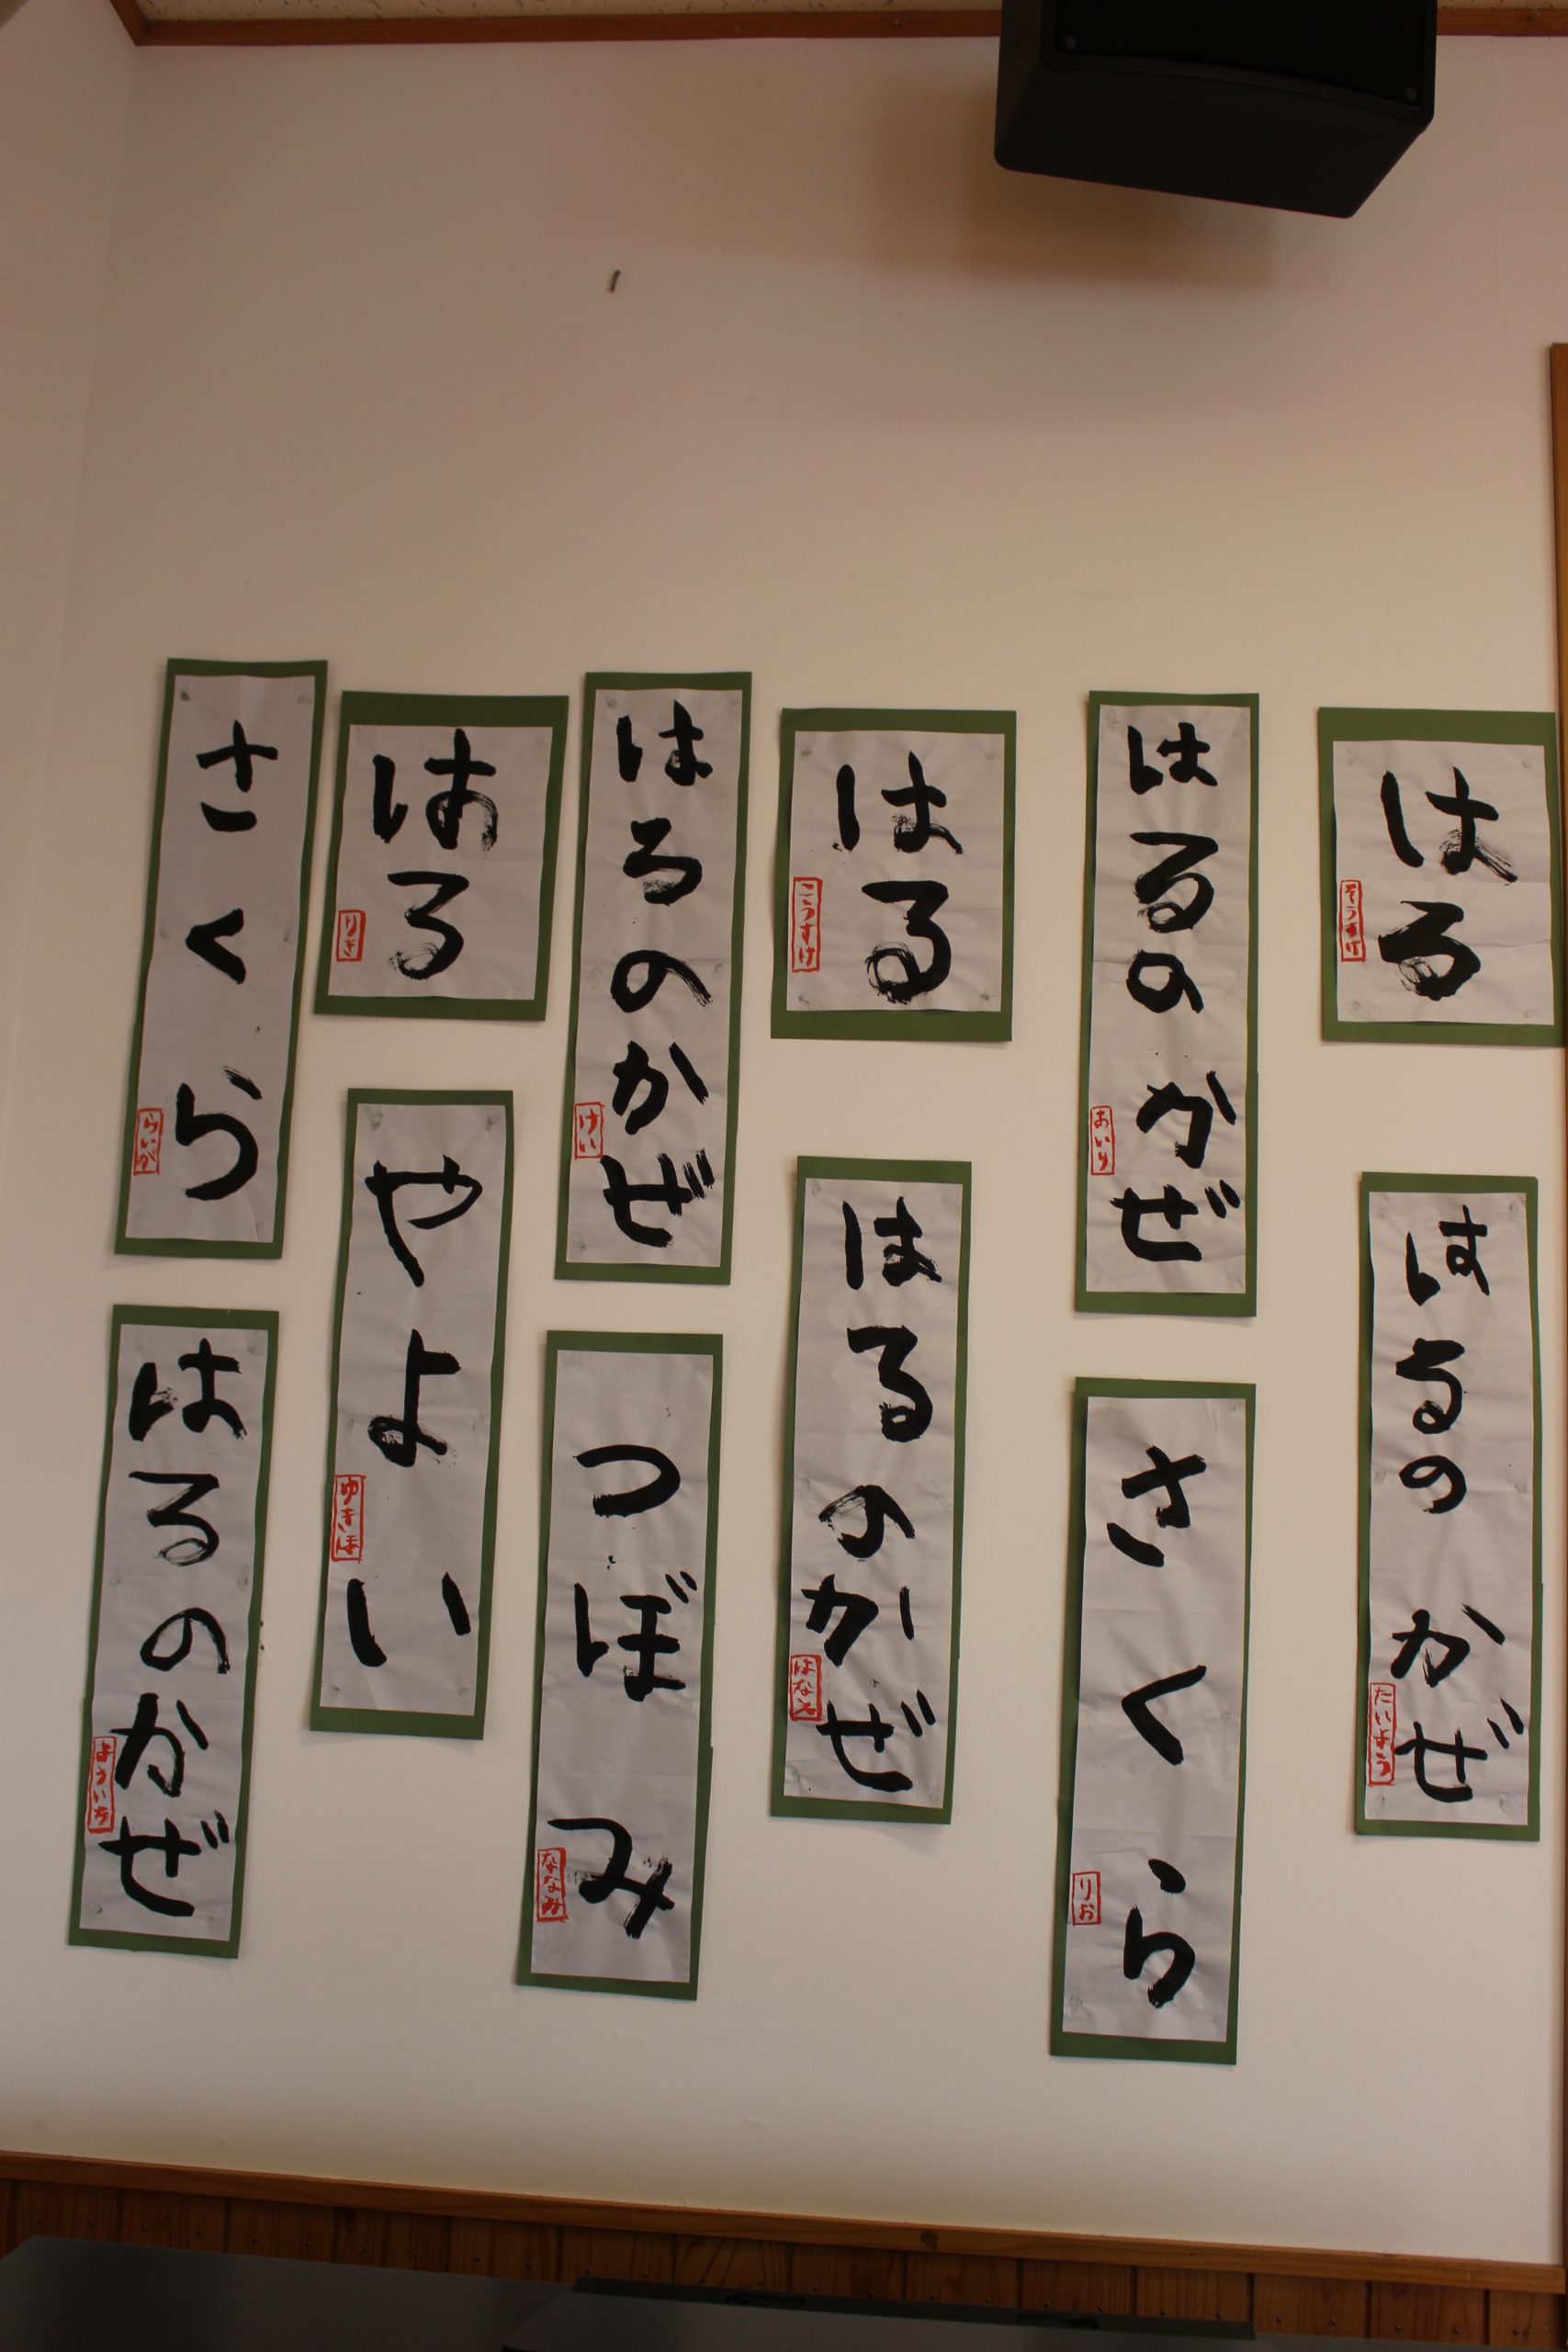 はる
そうすけ
はるのかぜ
たいよう
はるのかぜ
あいり
さくら
りお
はる
こうすけ
はるのかぜ
はなえ
はるのかぜ
けい
つぼみ
ななみ
はる
りき
やよい
ゆきほ
さくら
らいが
はるのかぜ
よういち